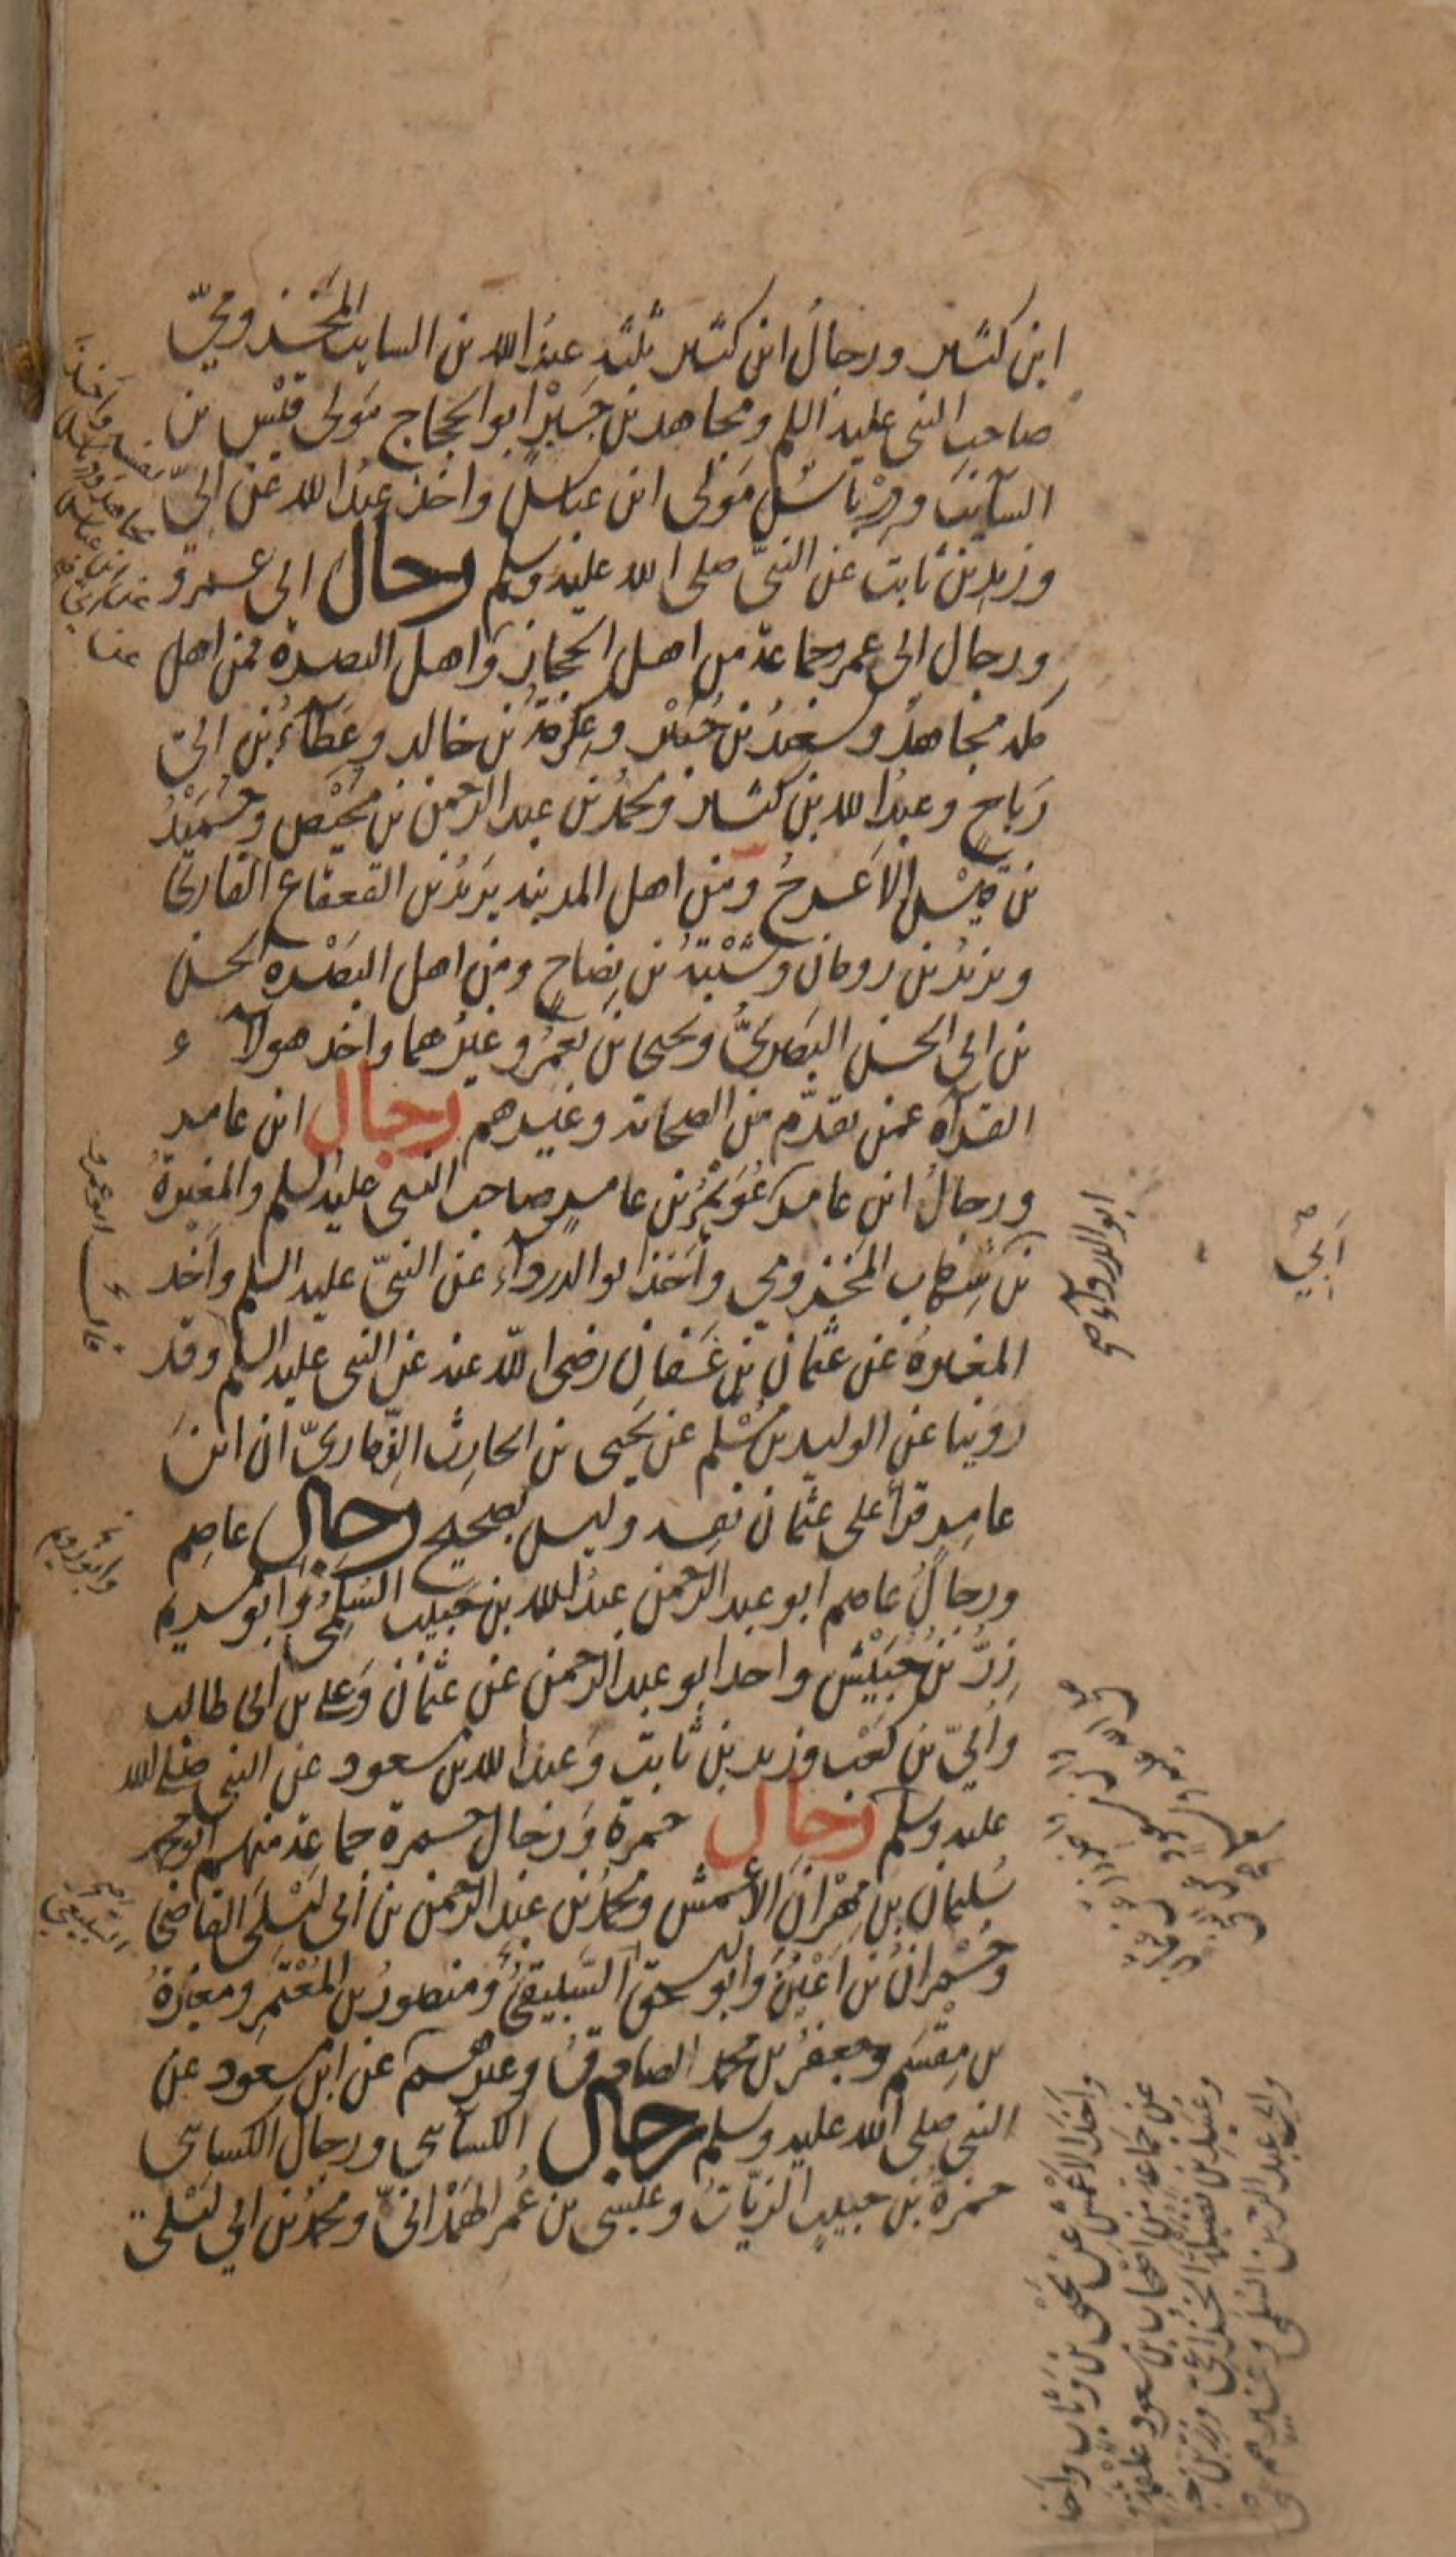 ابن كثير ورجال ابن كثير ثلثة عبد الله بن السايب المخزومي
صاحب النبي عليه السلم ومجاهد بن جبر ابو الحجاج مولى قيس بن
السايب ودرباس مولى ابن عباس واخذ عبد الله عن ابي
وزيد بن ثابت عن النبي صلى الله عليه وسلم رجال ابي عمرو
ورجال ابي عمر جماعة من اهل الحجاز واهل البصرة فمن اهل
مكة مجاهد وسعيد بن جبير وعكرمة بن خالد وعطاء بن ابي
رباح وعبد الله بن كثير ومحمد بن عبد الرحمن بن محيصن وحميد
بن قيس الاعرج ومن اهل المدينة يزيد بن القعقاع القاري
ويزيد بن رومان وشيبة بن نصاح ومن اهل البصرة الحسن
بن ابي الحسن البصري ويحيى بن يعمر وغيرهما واخذ هولاء
القراه عمن تقدم من الصحابة وغيرهم رجال ابن عامر
ورجال ابن عامر عويمر بن عامر صاحب النبي عليه السلم والمغيرة
بن شهاب المخزومي واخذ ابو الدرداء عن النبي عليه السلم واخذ
المغيرة عن عثمان بن عفان رضي الله عنه عن النبي عليه السلم وقد
روينا عن الوليد بن مسلم عن يحيى بن الحارث الذماري ان ابن
عامر قرأ على عثمان نفسه وليس بصحيح رجال عاصم
ورجال عاصم ابو عبد الرحمن عبد الله بن حبيب السلمي وابو مريم
زر بن حبيش واخذ ابو عبد الرحمن عن عثمان وعلي بن ابي طالب
وابي بن كعب وزيد بن ثابت وعبد الله بن مسعود عن النبي صلى الله
عليه وسلم رجال حمزة ورجال حمزة جماعة منهم ابو محمد
سليمان بن مهران الاعمش ومحمد بن عبد الرحمن بن ابي ليلى القاضي
وحمران بن اعين وابو اسحق السبيعي ومنصور بن المعتمر ومغيرة
بن مقسم وجعفر بن محمد الصادق وغيرهم عن ابن مسعود عن
النبي صلى الله عليه وسلم رجال الكسائي ورجال الكسائي
حمزة بن حبيب الزيات وعيسى بن عمر الهمداني ومحمد بن ابي ليلى
ابو الدرداء صح
أبي
واخذ الاعمش عن يحيى بن وثاب واخذ
عن جماعة من اصحاب ابن مسعود علقمة
وعبيد بن نضيلة الخزاعي وزر بن
وابي عبد الرحمن السلمي وغيرهم